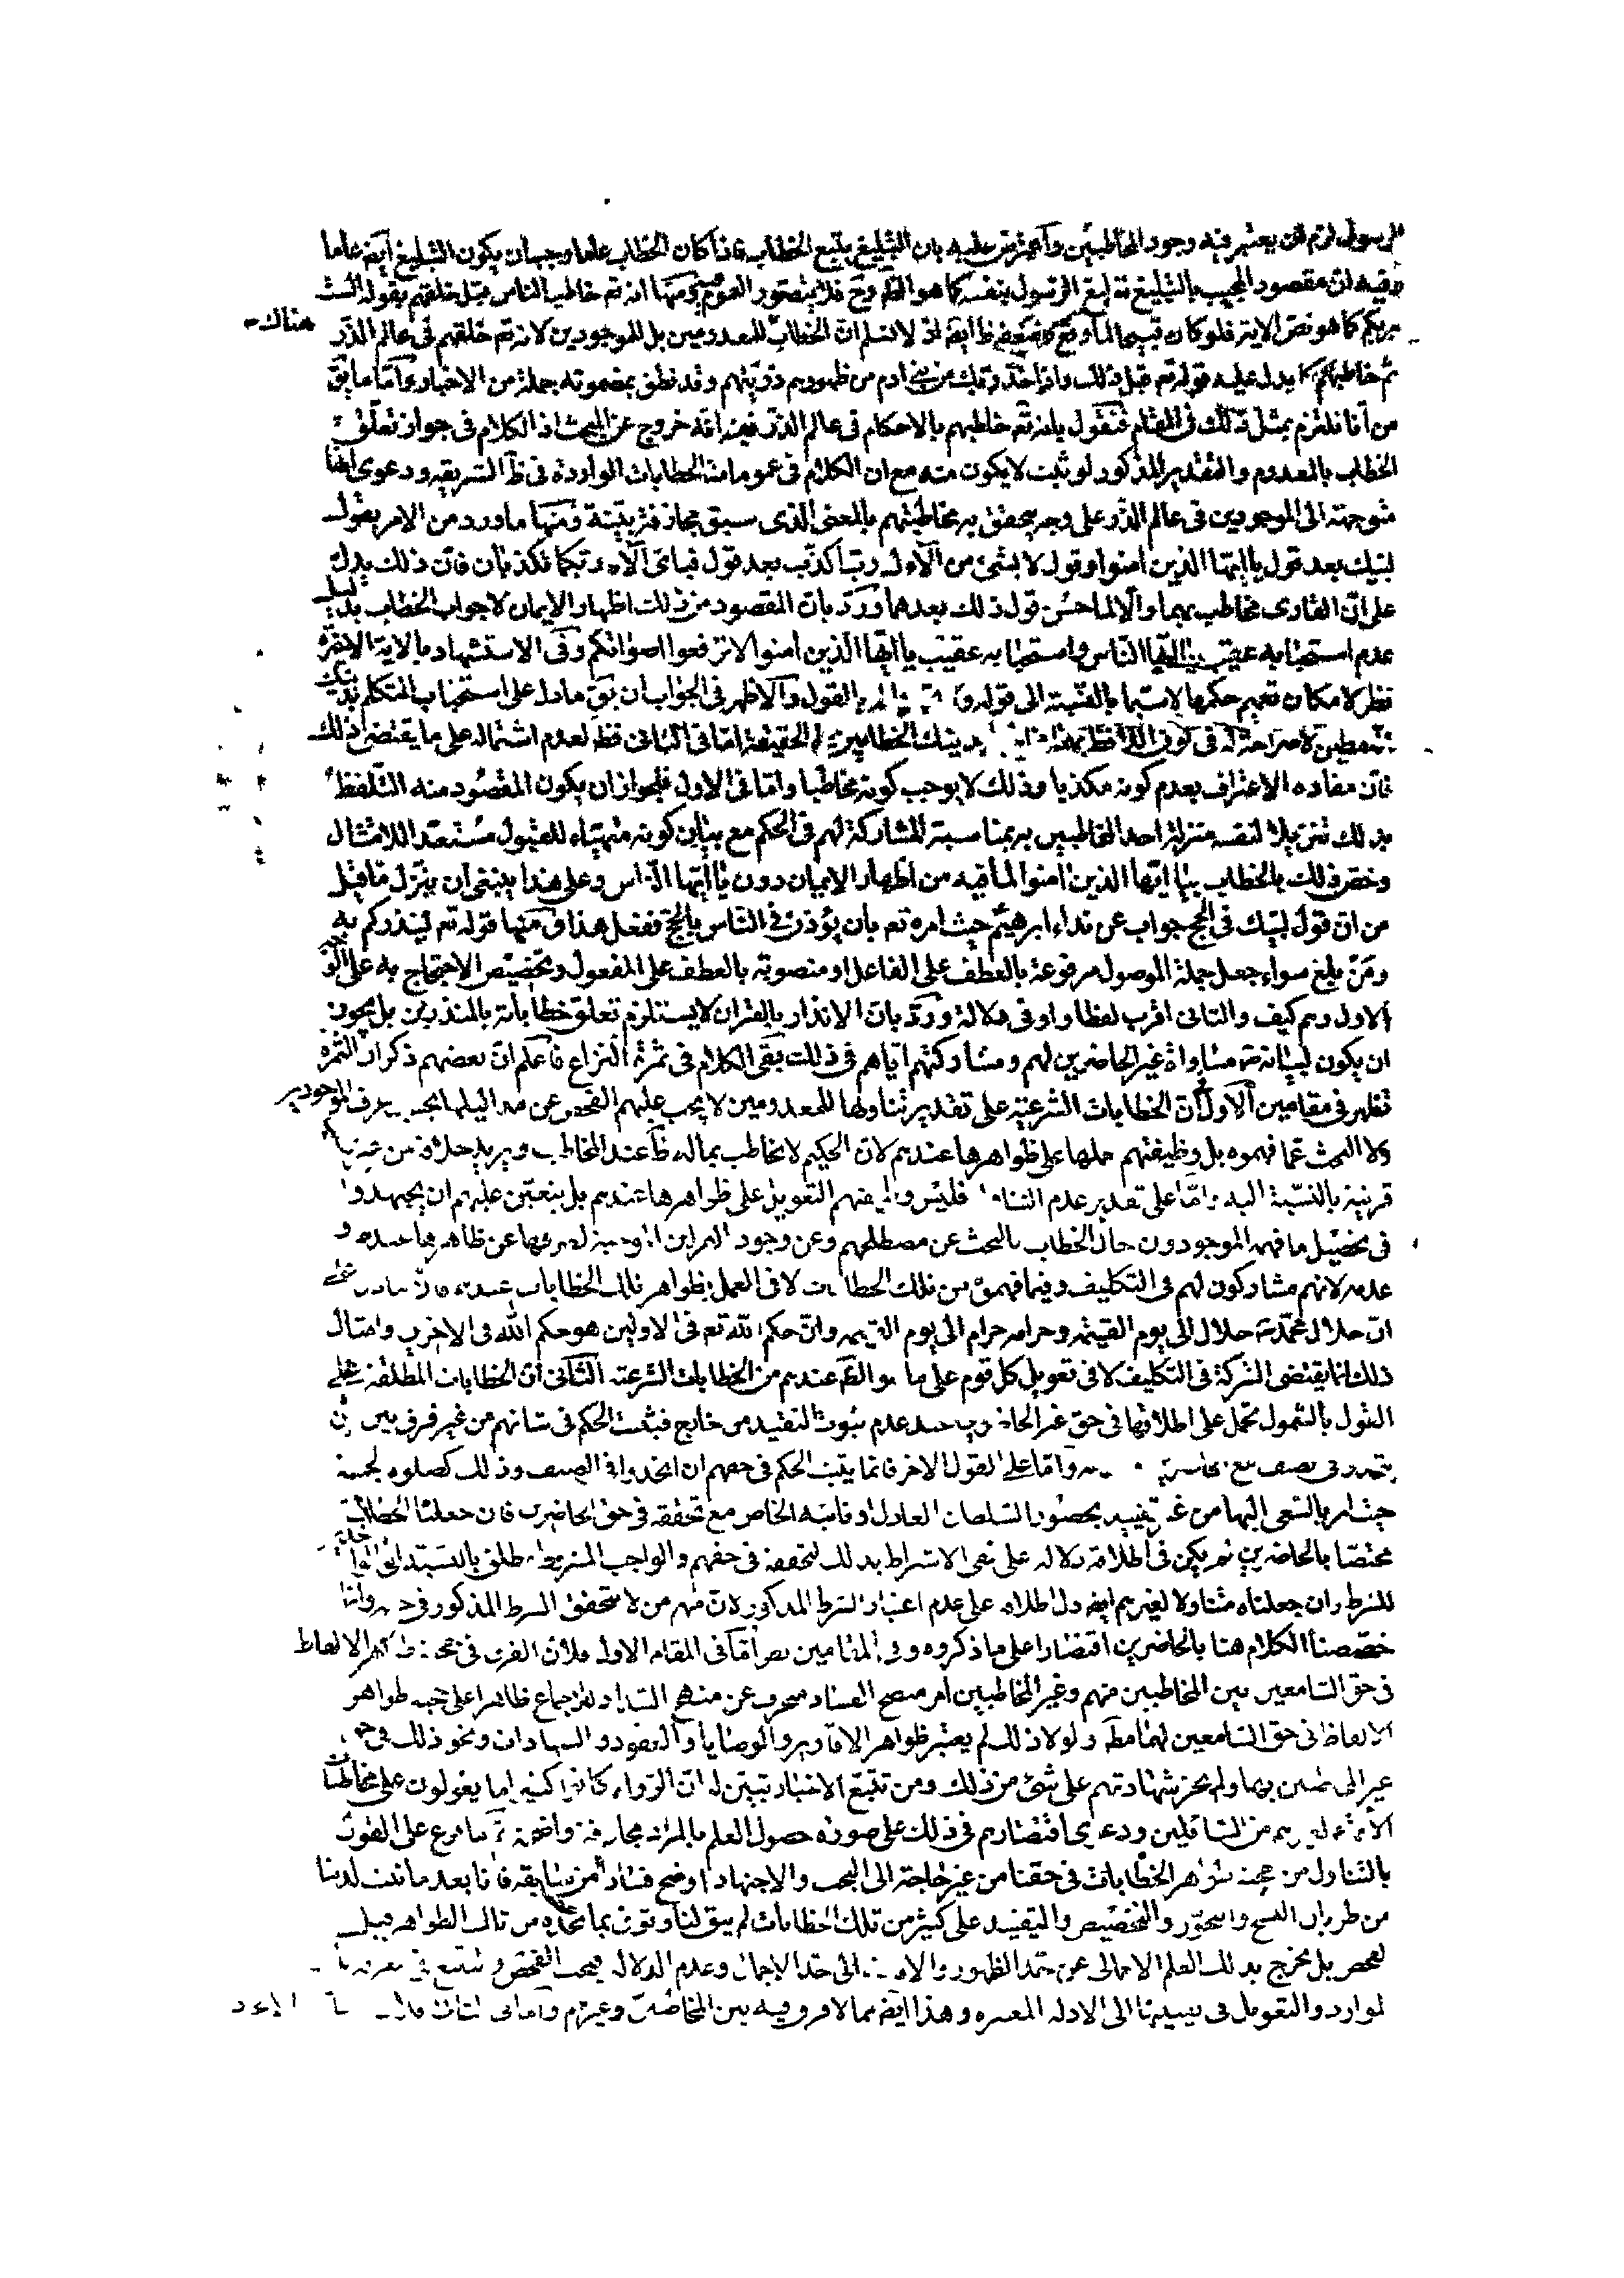 الرسول لزم ان يعتبر فيه وجود المخاطبين واعترض عليه بان التبليغ يتبع الخطاب فاذا كان الخطاب عاما وجب ان يكون التبليغ ايضا عاما
وفيه ان مقصود المجيب بالتبليغ تبليغ الرسول بنفسه كما هو الظ وح فلا يتصور العموم ومنها انه تع خاطب الناس قبل خلقهم بقوله الست
بربكم كما هو نص الاية فلو كان قبيحا لما وقع وضعفه ظ ايضا اذ لا نسلم ان الخطاب للمعدومين بل للموجودين لانه تع خلقهم فى عالم الذر هناك
ثم خاطبهم كما يدل عليه قوله تع قبل ذلك واذ اخذ ربك من بنى ادم من ظهورهم ذريتهم وقد نطق بمضمونه جملة من الاخبار واما ما يق
من انا نلتزم بمثل ذلك فى المقام فنقول بانه تع خاطبهم بالاحكام فى عالم الذر ففيه انه خروج عن المبحث اذ الكلام فى جواز تعلق
الخطاب بالمعدوم والتقدير المذكور لو ثبت لا يكون منه مع ان الكلام فى عموم هذه الخطابات الواردة فى ظ الشريعة ودعوى انها
متوجهة الى الموجودين فى عالم الذر على وجه يتحقق به مخاطبتهم بالمعنى الذى سبق مجازفة بينة ومنها ما ورد من الامر بقول
لبيك بعد قول يا ايها الذين امنوا وقول لا بشئ من آلائك رب اكذب بعد قول فباى آلاء ربكما تكذبان فان ذلك يدل
على ان القارى مخاطب بهما والا لما حسن قول ذلك بعدهما ورد بان المقصود من ذلك اظهار الايمان لا جواب الخطاب بدليل
عدم استحبابه عقيب يا ايها الناس واستحبابه عقيب يا ايها الذين امنوا لا ترفعوا اصواتكم وفى الاستشهاد بالاية الاخيرة
نظر لامكان تعميم حكمها لا سيما بالنسبة الى قوله و بالقول والاظهر فى الجواب ان يق ما دل على استحباب التكلم بذينك
اللفظين لا صراحة له فى كون اللافظ بذينك الخطابين فى الحقيقة اما فى الثانى فظ لعدم اشتماله على ما يقتضى ذلك
فان مفاده الاعتراف بعدم كونه مكذبا وذلك لا يوجب كونه مخاطبا واما فى الاول فلجواز ان يكون المقصود منه التلفظ
بذلك تنزيلا لنفسه منزلة احد المخاطبين به بمناسبة المشاركة لهم فى الحكم مع بيان كونه متهيئا للقبول مستعدا للامتثال
وخص ذلك بالخطاب بيا ايها الذين امنوا لما فيه من اظهار الايمان دون يا ايها الناس وعلى هذا ينبغى ان ينزل ما قيل
من ان قول لبيك فى الحج جواب عن نداء ابرهيم حيث امره تع بان يؤذن فى الناس بالحج ففعل هذا ومنها قوله تع لينذركم به
ومن بلغ سواء جعل جملة الموصول مرفوعة بالعطف على الفاعل او منصوبة بالعطف على المفعول وتخصيص الاحتجاج به على الوجه
الاول وهم كيف والثانى اقرب لفظا واوفى دلالة ورد بان الانذار بالقران لا يستلزم تعلق خطاباته بالمنذرين بل يجوز
ان يكون لبيانه مساواة غير الحاضرين لهم ومشاركتهم اياهم فى ذلك بقى الكلام فى ثمرة النزاع فاعلم ان بعضهم ذكر ان الثمرة
تظهر فى مقامين الاول ان الخطابات الشرعية على تقدير تناولها للمعدومين لا يجب عليهم الفحص عن عرف الموجودين
ولا البحث عما فهموه بل وظيفتهم حملها على ظواهرها عندهم لان الحكيم لا يخاطب بماله ظ عند المخاطب ويريد خلافه من غير
قرينة بالنسبة اليه واما على تقدير عدم التناول فليس وظيفتهم التعويل على ظواهرها عندهم بل يتعين عليهم ان يجتهدوا
فى تحصيل ما فهمه الموجودون حال الخطاب بالبحث عن مصطلحهم وعن وجود القراين الموجبة لصرفها عن ظاهرها عندهم و
عدمه لانهم مشاركون لهم فى التكليف وفيما فهموه من تلك الخطابات لا فى العمل بظواهر تلك الخطابات عندهم فان ما دل على
ان حلال محمد ص حلال الى يوم القيمة وحرامه حرام الى يوم القيمة وان حكم الله تع فى الاولين هو حكم الله فى الاخرين وامثال
ذلك انما يقتضى الشركة فى التكليف لا فى تعويل كل قوم على ما هو الظ عندهم من الخطابات الشرعية الثانى ان الخطابات المطلقة على
القول بالشمول تحمل على اطلاقها فى حق غير الحاضرين عند عدم ثبوت التقييد من خارج فيثبت الحكم فى شانهم من غير فرق بين ان
يتحدوا فى الصنف مع واما على القول الاخر فانما يثبت الحكم فى حقهم ان اتحدوا فى الصنف وذلك كصلوة الجمعة
حيث امر بالسعى اليها من غير تقييد بحضور السلطان العادل او نائبه الخاص مع تحققه فى حق الحاضرين فان جعلنا الخطاب
مختصا بالحاضرين لم يكن فى اطلاقه دلالة على نفى الاشتراط بذلك لتحققه فى حقهم والواجب المشروط مطلق بالنسبة الى الواجد
للشرط وان جعلناه متناولا لغيرهم ايضا دل اطلاقه على عدم اعتبار الشرط المذكور لان منهم من لا يتحقق الشرط المذكور فى حقه وانما
خصصنا الكلام هنا بالحاضرين اقتصارا على ما ذكروه وفى المقامين نظر اما فى المقام الاول فلان الفرق فى حجية ظواهر الالفاظ
فى حق السامعين بين المخاطبين منهم وغير المخاطبين امر متضح الفساد منحرف عن منهج السداد للاجماع ظاهرا على حجية ظواهر
الالفاظ فى حق السامعين لها مط ولولا ذلك لم يعتبر ظواهر الاقارير والوصايا والعقود والشهادات ونحو ذلك فى حق
غير المخاطبين بها ولم يجز شهادتهم على شئ من ذلك ومن تتبع الاخبار تبين له ان الرواة كانوا كثيرا ما يعولون على مخاطبات
الائمة لغيرهم من السائلين ودعوى اقتصارهم فى ذلك على صورة حصول العلم بالمراد مجازفة واضحة ثم ما فرع على القول
بالتناول من حجية ظواهر الخطابات فى حقنا من غير حاجة الى البحث والاجتهاد اوضح فسادا من سابقه فانا بعد ما ثبت لدينا
من طريان النسخ والتجوز والتخصيص والتقييد على كثير من تلك الخطابات لم يبق لنا وثوق بما نجده من تلك الظواهر قبل
الفحص بل يخرج بذلك العلم الاجمالى عن حد الظهور والا الى حد الاجمال وعدم الدلالة فيجب الفحص والتتبع فى معرفة
الموارد والتعويل فى تعيينها الى الادلة المعتبرة وهذا ايضا مما لا فرق فيه بين المخاطبين وغيرهم واما فى الثانى فلان